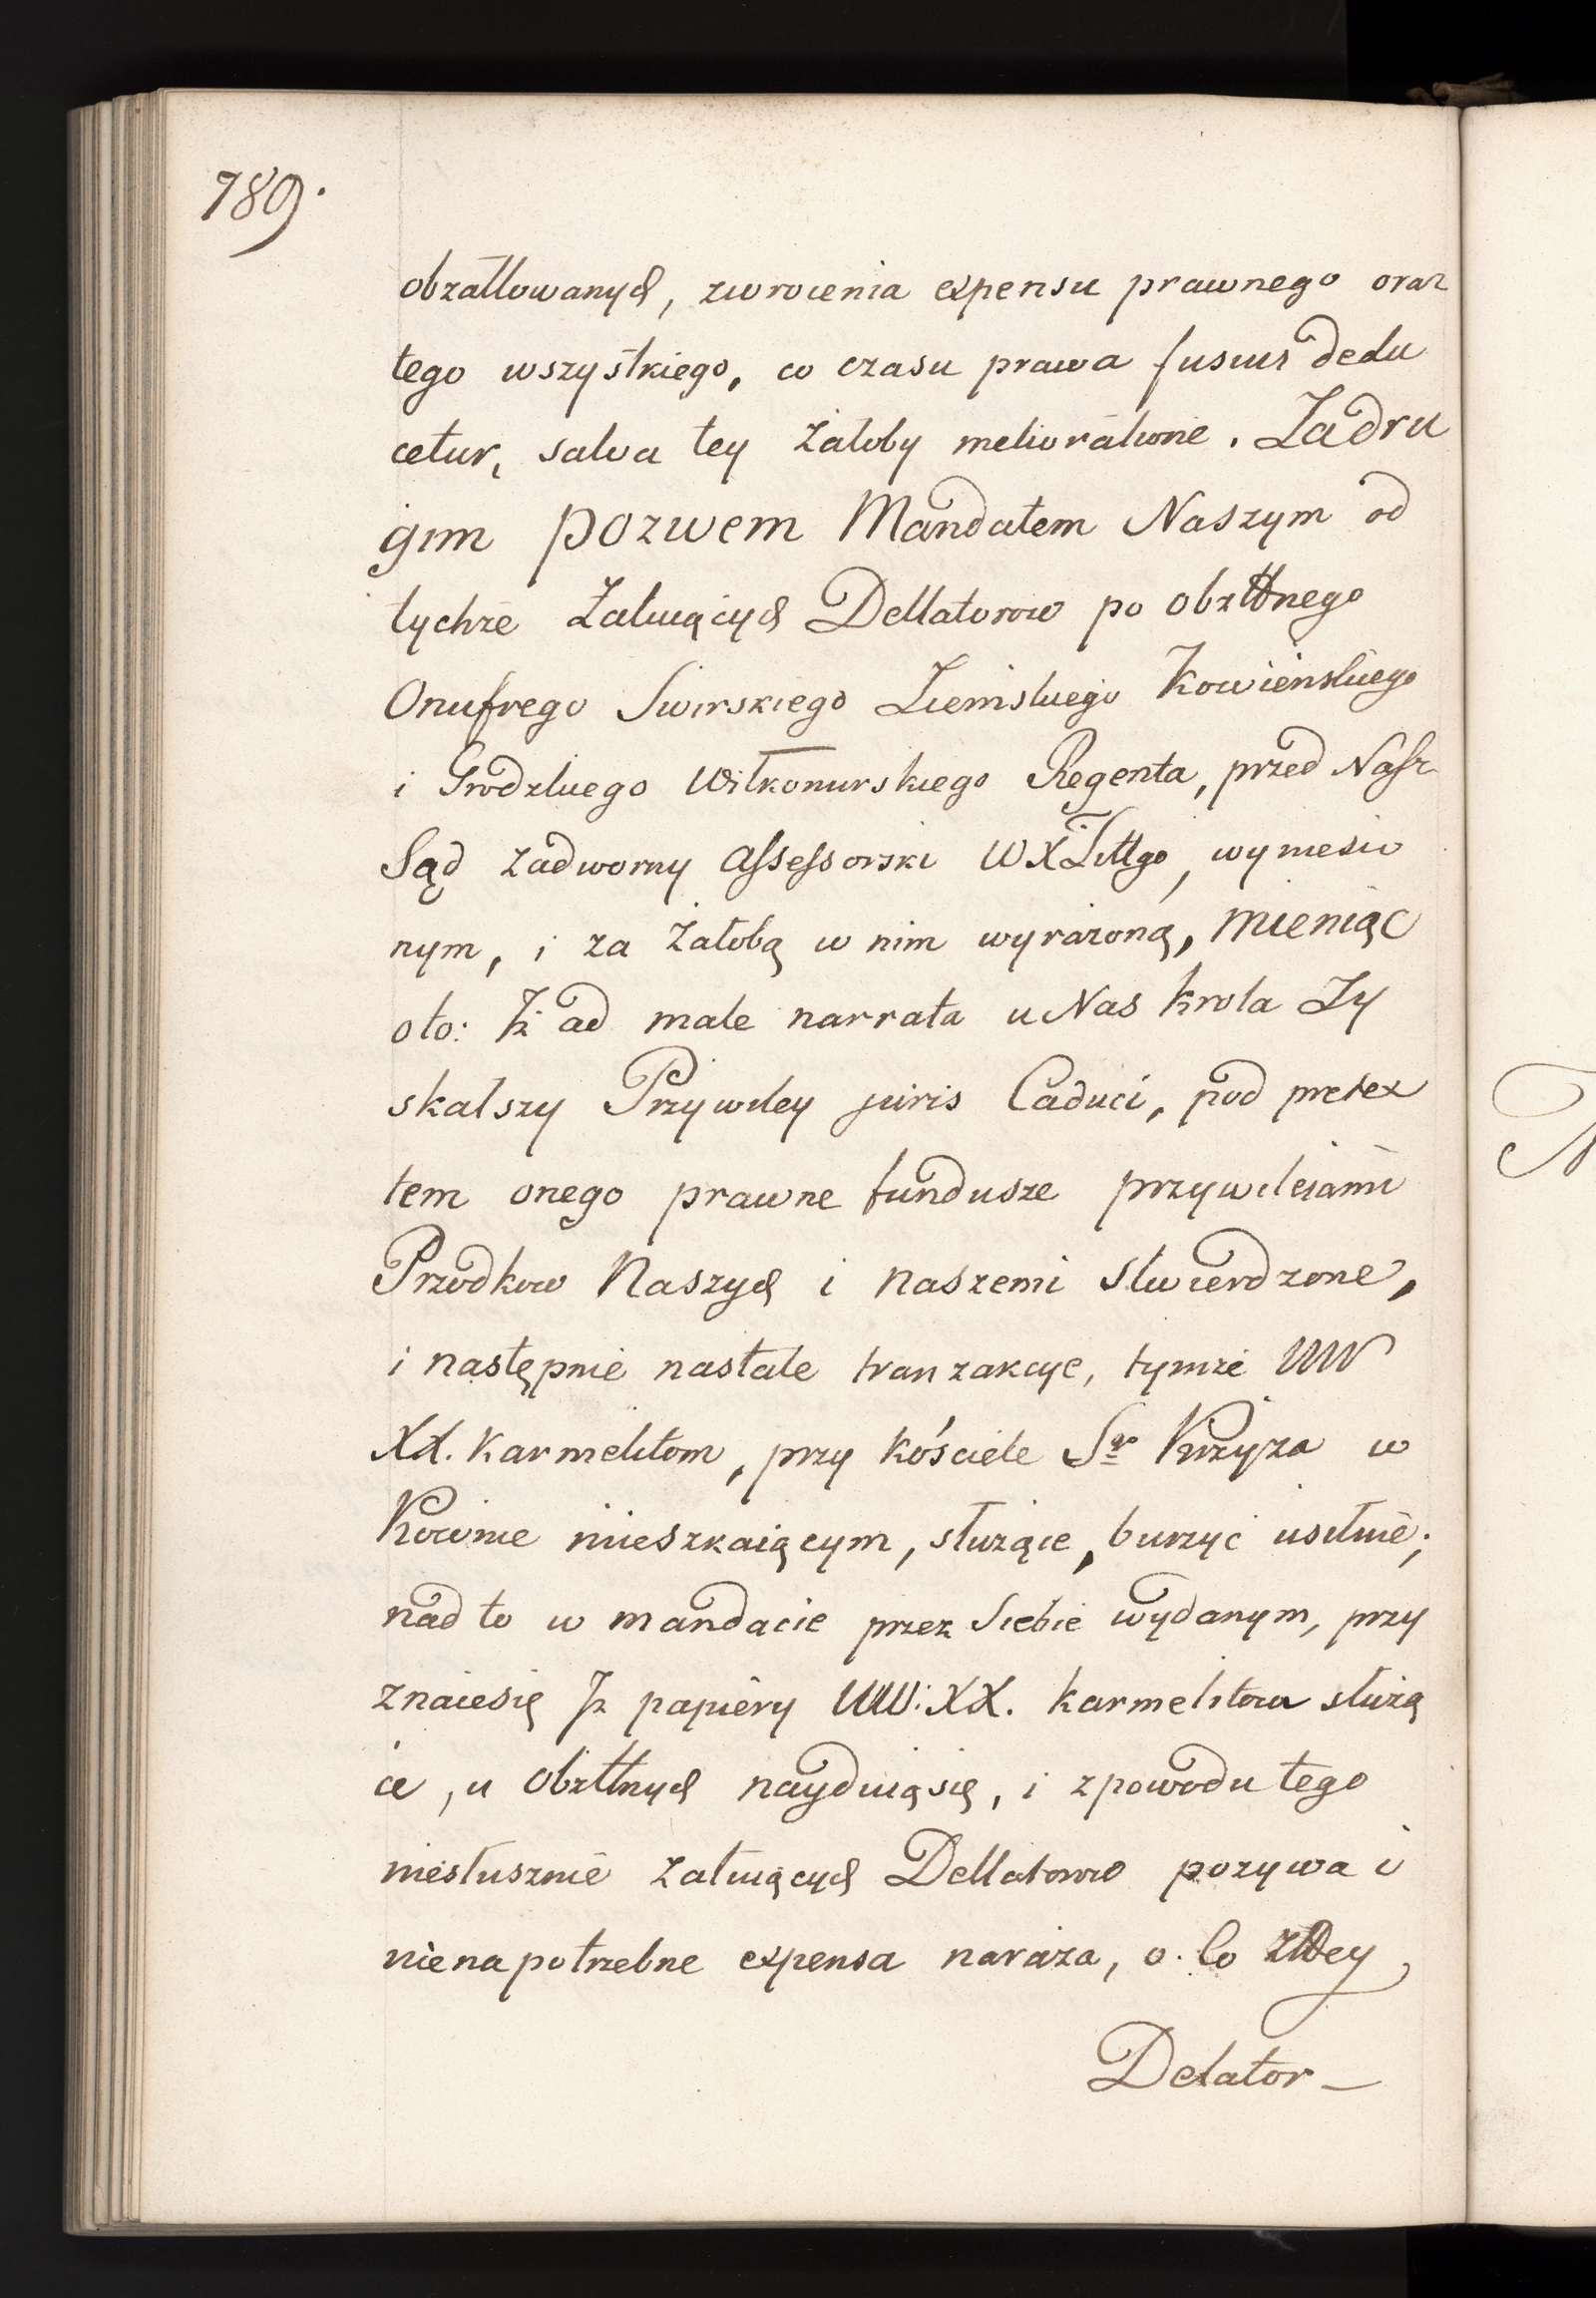 789.
obżałłowanych, zwrocenia expensu prawnego oraz
tego wszystkiego, co czasu prawa fusius dedu
cetur, salva tey żałoby melioratione. Za dru
gim pozwem Mandatem Naszym od
tychże Żałuiących Dellatorow po obżłłnego
Onufrego Swirskiego Ziemskiego Kowienskiego
i Grodzkiego Wiłkomirskiego Regenta, przed Nasz
Sąd zadworny Assessorski WXLittgo, wyniesio
nym, i za żałobą w nim wyrażoną, mieniąc
oto: Iż ad male narrata u Nas Krola Zy
skałszy Przywiley juris Caduci, pod pretex
tem onego prawne fundusze przywileiami
Przodkow Naszych i naszemi stwierdzone,
i następnie nastałe tranzakcye, tymże WW
XX. Karmelitom, przy kościele Sgo Krzyża w
Kownie mieszkaiącym, służące, burzyć usiłuie;
nad to w mandacie przez Siebie wydanym, przy
znaiesię Iż papiery WW: XX. Karmelitow służą
ce, u obżłłnych nayduią się, i z powodu tego
niesłusznie żałuiących Dellatorow pozywa i
nie na potrzebne expensa naraża, o. Co żłłey
Delator_